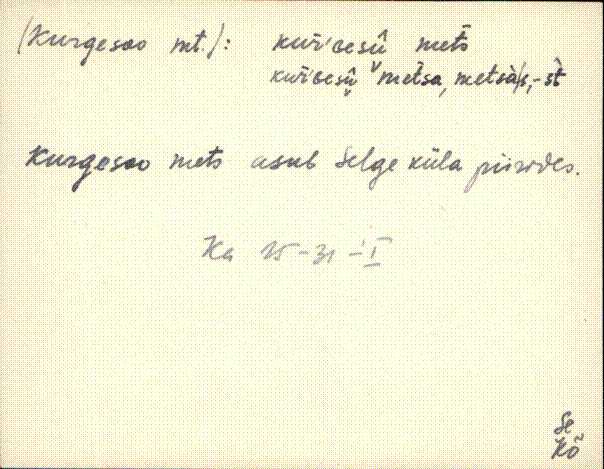 (Kurgesoo mt.): kur'gesū mets
kur'gesū metsa, metsàs, -st
Kurgesoo mets asub Selge küla piirides.
Ka 25-31-I
Se
Kõ